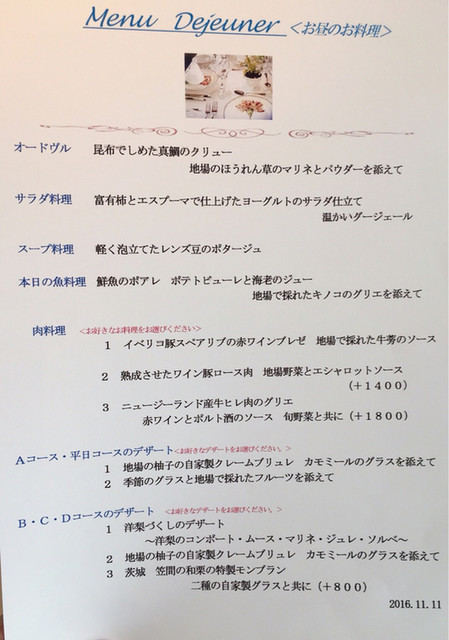 Menu Dejeuner <お昼のお料理>
オードヴル 昆布でしめた真鯛のクリュー
地場のほうれん草のマリネとパウダーを添えて
サラダ料理 富有柿とエスプーマで仕上げたヨーグルトのサラダ仕立て
温かいダージェール
スープ料理 軽く泡立てたレンズ豆のポタージュ
本日の魚料理 鮮魚のポアレ ポテトピューレと海老のジュー
地場で採れたキノコのグリエを添えて
肉料理 <お好きなお料理をお選びください>
1 イベリコ豚スペアリブの赤ワインブレゼ 地場で採れた牛蒡のソース
2 熟成させたワイン豚ロース肉 地場野菜とエシャロットソース
(+1400)
3 ニュージーランド産牛ヒレ肉のグリエ
赤ワインとポルト酒のソース 旬野菜と共に(+1800)
Aコース・平日コースのデザート<お好きなデザートをお選びください。>
1 地場の柚子の自家製クレームブリュレ カモミールのグラスを添えて
2 季節のグラスと地場で採れたフルーツを添えて
B・C・Dコースのデザート <お好きなデザートをお選びください。>
1 洋梨づくしのデザート
~洋梨のコンポート・ムース・マリネ・ジュレ・ソルベ~
2 地場の柚子の自家製クレームブリュレ カモミールのグラスを添えて
3 茨城 笠間の和栗の特製モンブラン
二種の自家製グラスと共に(+800)
2016.11.11